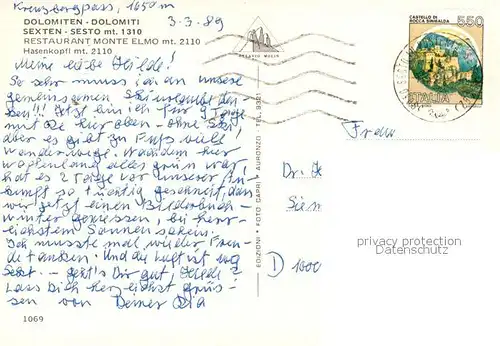 Kreuzbergpass, 1650 m
3-3-89
DOLOMITEN - DOLOMITI
SEXTEN - SESTO mt. 1310
RESTAURANT MONTE ELMO mt. 2110
Hasenkopfl mt. 2110
Meine liebe Hilde!
So sehr muss ich an unsere
gemeinsamen Skiurlaube den-
ken!! Jetzt bin ich für 9 Tage
mit hier oben ohne Ski,
aber es gibt zu Fuß viele
Wanderwege. Nachdem hier
alles grün war,
hat es 2 Tage vor unserer An-
kunft so tüchtig geschneit, dass
wir jetzt einen Bilderbuch-
winter geniessen, bei herr-
lichstem Sonnenschein.
Ich musste mal wieder Freu-
de tanken. Und die Luft ist
Sekt. - geht's Dir gut, Hilde?
Lass Dich herzlichst grüs-
sen von Deiner
1069
EDIZIONI • FOTO CAPRI • AURONZO • TEL. 9321
CASTELLO DI
ROCCA SINIBALDA
550
ITALIA
Frau
Dr.
Sie
D 1000
privacy protection
Datenschutz